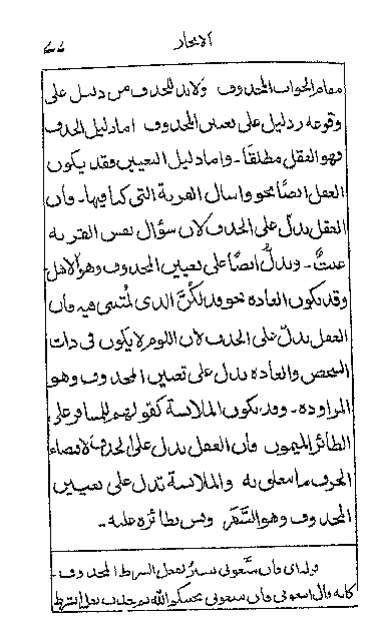 الايجاز ٤٤
مقام الجواب المحذوف ولا بد للحذف من دليل على
وقوعه ودليل على تعيين المحذوف اما دليل الحذف
فهو العقل مطلقًا - واما دليل التعيين فقد يكون
العقل ايضًا نحو واسال القرية التي كنا فيها - فان
العقل يدلّ على الحذف لان سؤال نفس القرية
عبثٌ - ويدلّ ايضًا على تعيين المحذوف وهو الاهل
وقد تكون العادة نحو فذلكنَّ الذي لمتنني فيه فان
العقل يدلّ على الحذف لان اللوم لا يكون في ذات
الشخص والعادة تدل على تعيين المحذوف وهو
المراودة - وقد تكون الملابسة كقولهم للمسافر على
الطائر الميمون فان العقل يدل على الحذف لاقتضاء
الحرف ما يتعلق به والملابسة تدل على تعيين
المحذوف وهو السَّفَر وقس نظائره عليه -
قوله اي فان تتَّبعوني تفسيرٌ لفعل الشرط المحذوف -
كانه قال اتبعوني فان تتبعوني يحببكم الله ثم حذف فعل الشرط